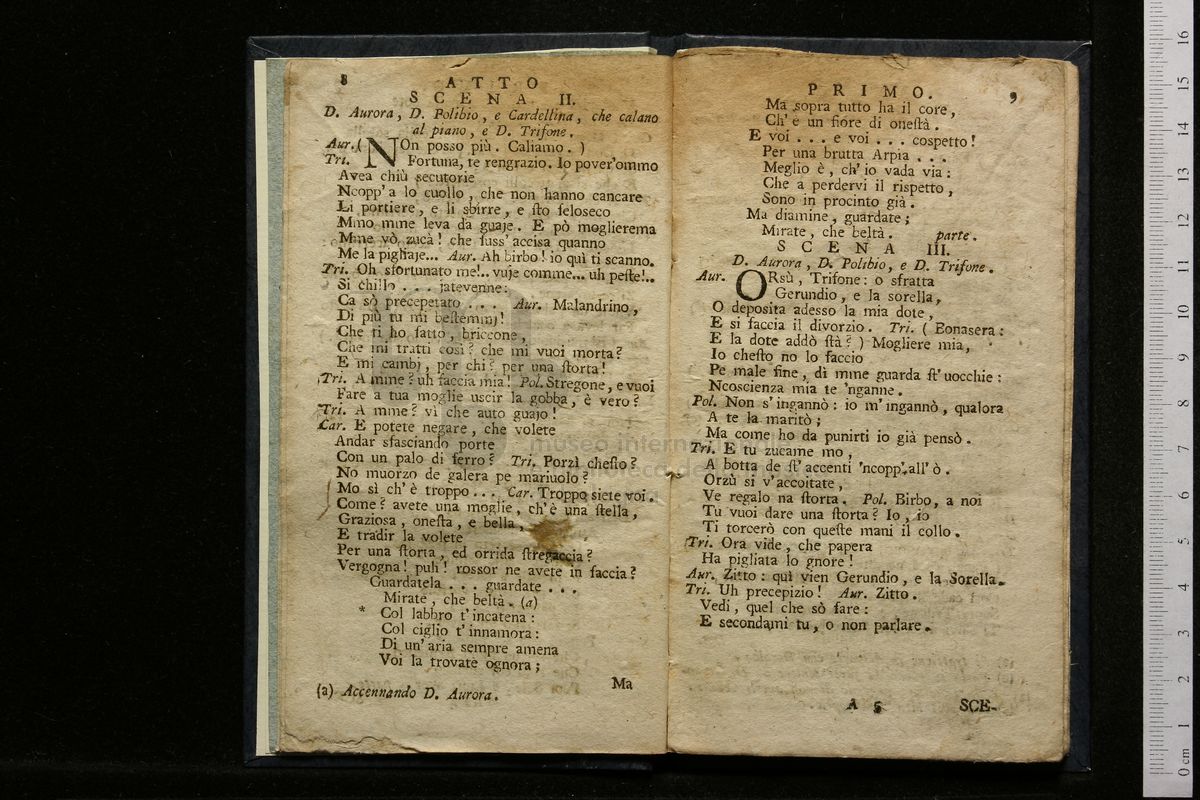 8 ATTO
SCENA II.
D. Aurora, D. Polibio, e Cardellina, che calano
al piano, e D. Trifone.
Aur. ( NOn posso più. Caliamo. )
Tri. Fortuna, te rengrazio. Io pover'ommo
Avea chiù secutorie
Ncopp'a lo cuollo, che non hanno cancare
Li portiere, e li sbirre, e sto feloseco
Mmo mme leva da guaje. E pò moglierema
Mme vò zucà! che fuss'accisa quanno
Me la pigliaje... Aur. Ah birbo! io quì ti scanno.
Tri. Oh sfortunato me!.. vuje comme... uh peste!..
Si chillo . . . jatevenne:
Ca sò precepetato . . . Aur. Malandrino,
Di più tu mi bestemmj!
Che ti ho fatto, briccone,
Che mi tratti così? che mi vuoi morta?
E mi cambj, per chi? per una storta!
Tri. A mme? uh faccia mia! Pol. Stregone, e vuoi
Fare a tua moglie uscir la gobba, è vero?
Tri. A mme? vì che auto guajo!
Car. E potete negare, che volete
Andar sfasciando porte
Con un palo di ferro? Tri. Porzì chesto?
No muorzo de galera pe mariuolo?
Mo sì ch'è troppo... Car. Troppo siete voi.
Come? avete una moglie, ch'è una stella,
Graziosa, onesta, e bella,
E tradir la volete
Per una storta, ed orrida stregaccia?
Vergogna! puh! rossor ne avete in faccia?
Guardatela . . . guardate . . .
Mirate, che beltà. (a)
* Col labbro t'incatena:
Col ciglio t'innamora:
Di un'aria sempre amena
Voi la trovate ognora;
Ma
(a) Accennando D. Aurora.
PRIMO. 9
Ma sopra tutto ha il core,
Ch'è un fiore di onestà.
E voi . . . e voi . . . cospetto!
Per una brutta Arpia . . .
Meglio è, ch'io vada via:
Che a perdervi il rispetto,
Sono in procinto già.
Ma diamine, guardate;
Mirate, che beltà. parte.
SCENA III.
D. Aurora, D. Polibio, e D. Trifone.
Aur. ORsù, Trifone: o sfratta
Gerundio, e la sorella,
O deposita adesso la mia dote,
E si faccia il divorzio. Tri. ( Bonasera:
E la dote addò stà? ) Mogliere mia,
Io chesto no lo faccio
Pe male fine, dì mme guarda st'uocchie:
Ncoscienza mia te 'nganne.
Pol. Non s'ingannò: io m'ingannò, qualora
A te la maritò;
Ma come ho da punirti io già pensò.
Tri. E tu zucame mo,
A botta de st'accenti 'ncopp'all'ò.
Orzù si v'accoitate,
Ve regalo na storta. Pol. Birbo, a noi
Tu vuoi dare una storta? Io, io
Ti torcerò con queste mani il collo.
Tri. Ora vide, che papera
Ha pigliata lo gnore!
Aur. Zitto: quì vien Gerundio, e la Sorella.
Tri. Uh precepizio! Aur. Zitto.
Vedi, quel che sò fare:
E secondami tu, o non parlare.
A 5 SCE-
museo internazionale